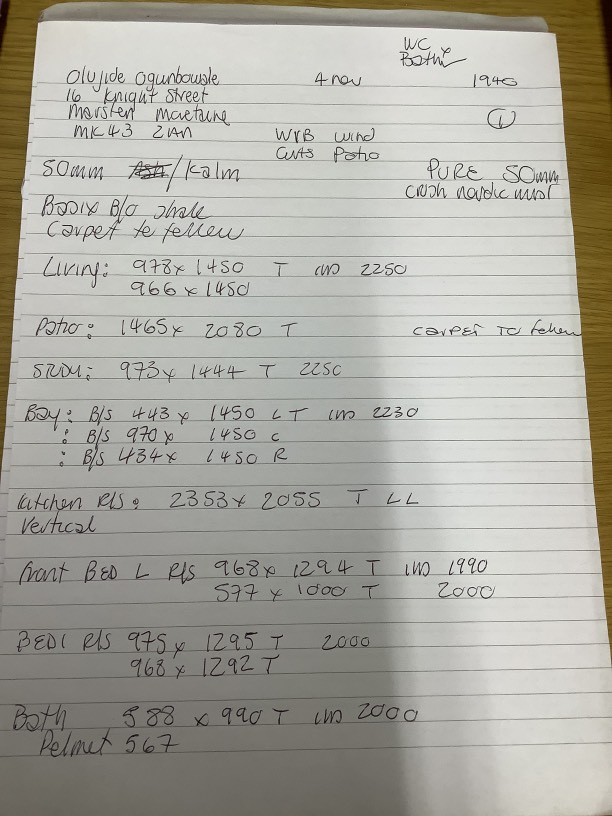 WC
Bath
Olujide Ogunbowale 4 nov 1940
16 Knight Street
Marsten
MK43 2AN WTB wind ①
Cuts Patio
50mm Ash/Kalm PURE 50mm
crush nordic mist
B/O
Carpet to follow
Living: 978 x 1450 T IND 2250
966 x 1450
Patio: 1465 x 2080 T Carpet to follow
STUDY: 973 x 1444 T 2250
Bay: B/S 443 x 1450 L T IND 2230
: B/S 970 x 1450 C
: B/S 434 x 1450 R
Kitchen R/S: 2353 x 2055 T LL
Vertical
Front BED L R/S 968 x 1294 T IND 1990
577 x 1000 T 2000
BED1 R/S 975 x 1295 T 2000
968 x 1292 T
Bath 588 x 990 T IND 2000
Pelmet 567